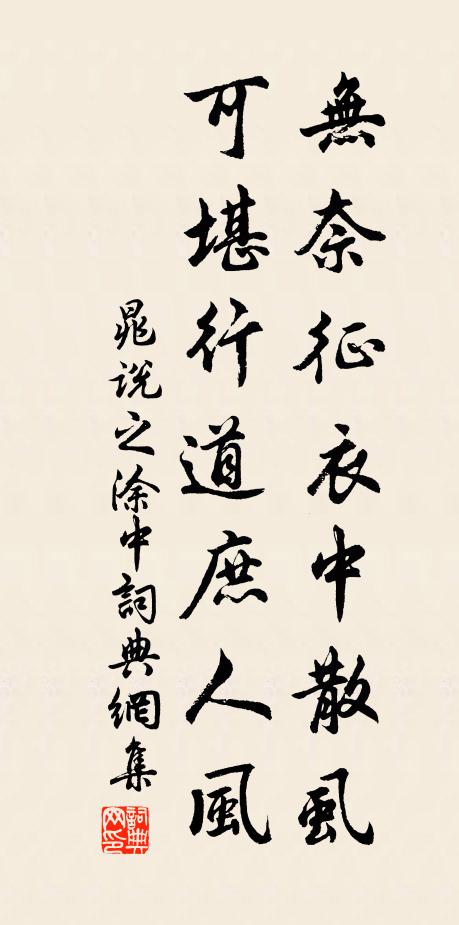 無奈征衣中散虱
可堪行道庶人風
晁説之涂中詞典網集
詞典
网印